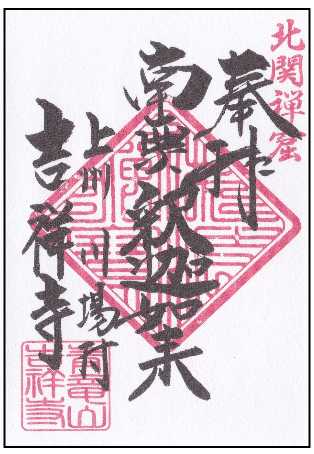 北関禅窟
奉拝
南無釈迦如来
上州川場村
吉祥寺
青竜山
吉祥寺